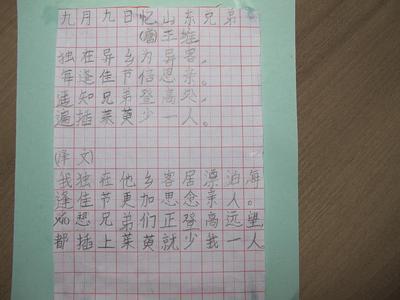 九月九日忆山东兄弟
(唐)王维
独在异乡为异客,
每逢佳节倍思亲。
遥知兄弟登高处,
遍插茱萸少一人。
(译文)
我独在他乡客居漂泊每
逢佳节更加思念亲人。
遥想兄弟们正登高远望
都插上茱萸就少我一人